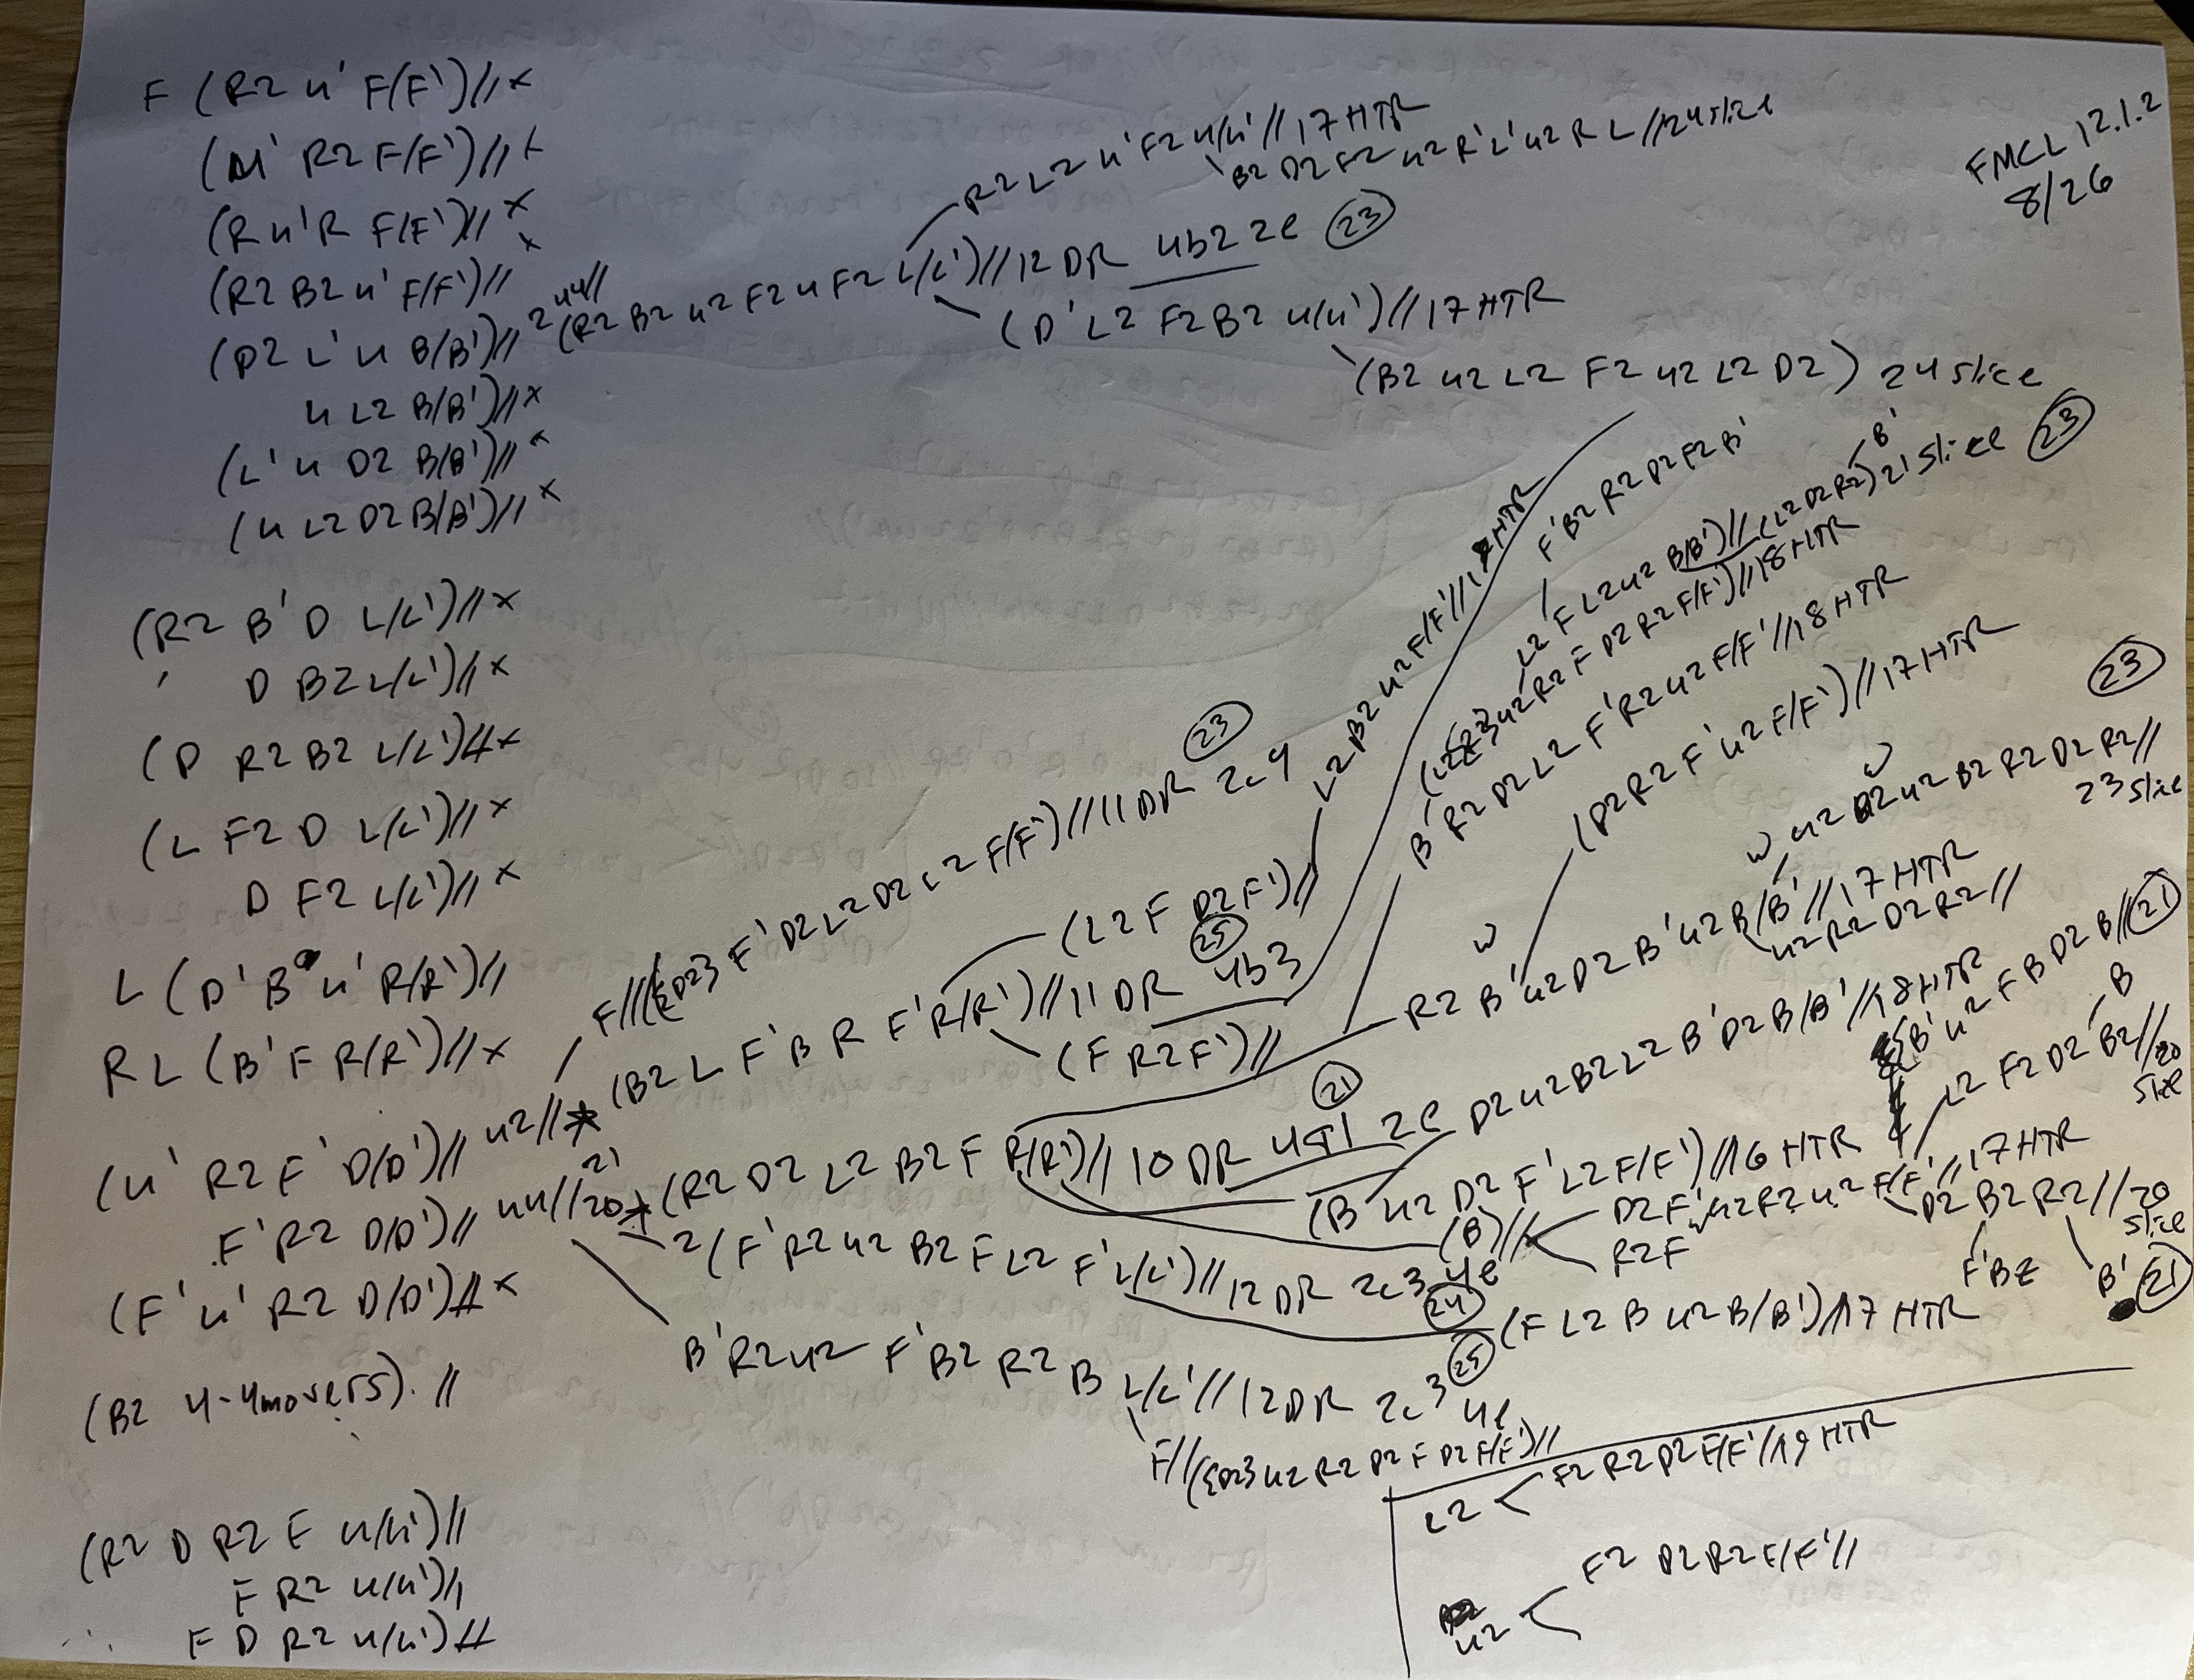 FMCL 12.1.2
8/26
F (R2 u' F(F')//x
(u' R2 F/F')//x
(R u' R F(F')//x
(R2 B2 u' F/F')//x
(D2 L' u B/B')// 2 u4//
u L2 B/B')//x
(L' u D2 B(B')//x
(u L2 D2 B/B')//x
(R2 B2 u2 F2 u F2 L/L')//12 DR 4b2 2e (23)
R2 L2 u' F2 u/u'//17 HTR
B2 D2 F2 u2 R' L' u2 R L//24 slice
(D' L2 F2 B2 u/u')//17 HTR
(B2 u2 L2 F2 u2 L2 D2) 24 slice
(R2 B' D L/L')//x
D B2 L/L')//x
(D R2 B2 L/L')//x
(L F2 D L/L')//x
D F2 L/L')//x
L (D' B u' R/R')//
R L (B' F R/R')//x
(u' R2 F' D/D')// u2//
F' R2 D/D')// u4//20
(F' u' R2 D/D')//x
(B2 4-4movers). //
(R2 D R2 F u/u')//
F R2 u/u')//
F D R2 u/u')//
F//({D2} F' D2 L2 D2 L2 F/F')//11 DR 2c4 (23)
(B2 L F' B R F' R/R')//11 DR 4b3 (25)
(L2 F D2 F')//
L2 B2 u2 F/F'//17 HTR
(F R2 F')//
F' B2 R2 D2 F2 B'
L2 F L2 u2 B/B')//(L2 D2 R2) 21 slice (23)
B'
u2 R2 F D2 R2 F/F')//18 HTR
B' R2 D2 L2 F' R2 u2 F/F'//18 HTR
(D2 R2 F' u2 F/F')//17 HTR
(R2 D2 L2 B2 F R/R')//10 DR 2e (21)
R2 B' u2 D2 B' u2 B/B'//17 HTR
w
w u2 B2 u2 B2 R2 D2 R2// 23 slice (23)
w
u2 R2 D2 R2//
D2 u2 B2 L2 B' D2 B/B'//18 HTR
(B u2 D2 F' L2 F/F')//16 HTR
B' u2 F B D2 B//(21)
L2 F2 D2 B2//20 slice
B
(B)//
D2 F' u2 R2 u2 F/F'//17 HTR
R2 F
D2 B2 R2//20 slice
F' B2
B' (21)
2(F' R2 u2 B2 F L2 F' L/L')//12 DR 2c3 4e (24)
(F L2 B u2 B/B')//17 HTR
B' R2 u2 F' B2 R2 B L/L'//12 DR 2c3 4e (25)
F//({D2} u2 R2 D2 F D2 F/F')//
L2 < F2 R2 D2 F/F'//19 HTR
u2 < F2 D2 R2 F/F'//